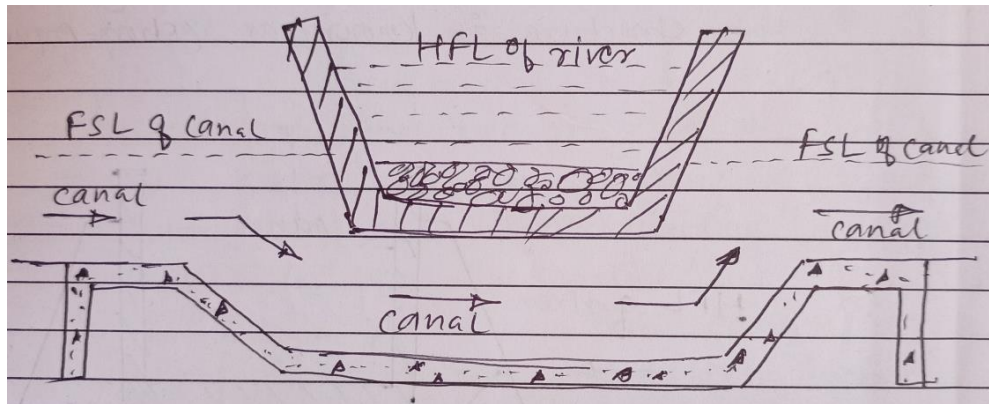 HFL of river
FSL of canal
FSL of canal
canal
canal
canal